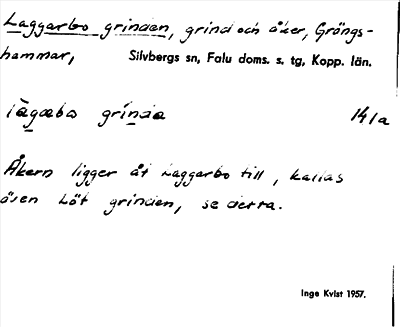 Laggarbo grinden, grind och åker, Grängs-
hammar, Silvbergs sn, Falu doms. s. tg, Kopp. län.
làgabo grínda 141a
Åkern ligger åt Laggarbo till, kallas
även Löt grinden, se detta.
Inge Kvist 1957.